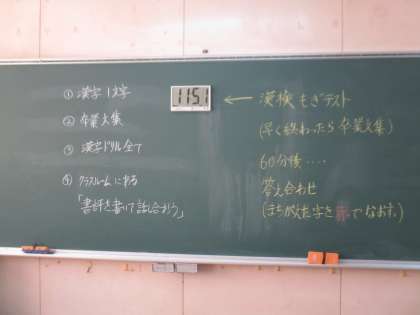 ① 漢字 1文字
② 卒業文集
③ 漢字ドリル全て
④ クラスルームに入る
「書評を書いて話し合おう」
1151
← 漢検 もぎテスト
(早く終わったら卒業文集)
60分後‥‥
答え合わせ
(まちがえた字を赤でなおす。)